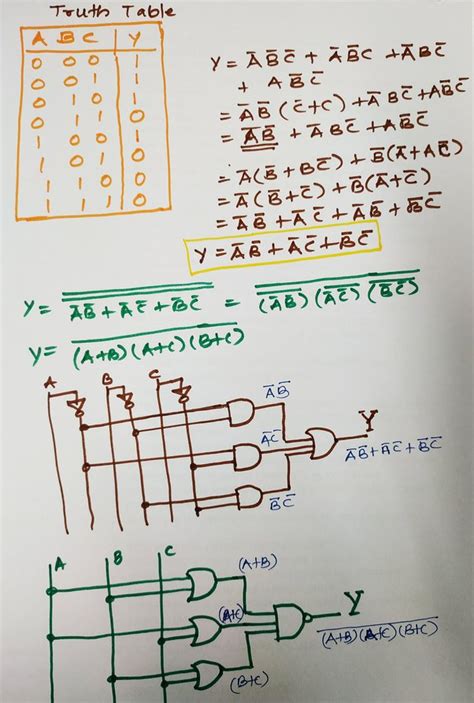 Truth Table
A B C Y
0 0 0 1
0 0 1 1
0 1 0 1
0 1 1 0
1 0 0 1
1 0 1 0
1 1 0 0
1 1 1 0
Y = A̅ B̅ C̅ + A̅ B̅ C + A̅ B C̅
+ A B̅ C̅
= A̅ B̅ (C̅+C) + A̅ B C̅ + A B̅ C̅
= A̅B̅ + A̅ B C̅ + A B̅ C̅
= A̅(B̅ + B C̅) + B̅(A̅ + A C̅)
= A̅(B̅ + C̅) + B̅(A̅ + C̅)
= A̅B̅ + A̅ C̅ + A̅B̅ + B̅ C̅
Y = A̅B̅ + A̅ C̅ + B̅ C̅
Y = \overline{\overline{A̅B̅ + A̅ C̅ + B̅ C̅}} = \overline{\overline{(A̅B̅)} \overline{(A̅C̅)} \overline{(B̅C̅)}}
Y = \overline{(A+B)(A+C)(B+C)}
A B C
A̅B̅
Y
A̅C̅
A̅B̅ + A̅C̅ + B̅C̅
B̅C̅
A B C
(A+B)
(A+C)
Y
\overline{(A+B)(A+C)(B+C)}
(B+C)